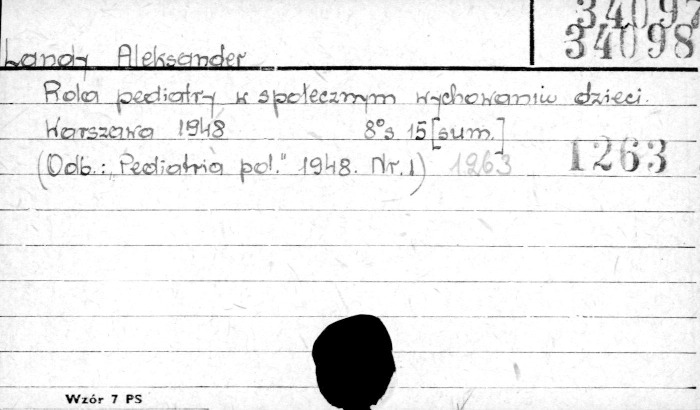 34097
34098
Landy Aleksander
Rola pediatry w społecznym wychowaniu dzieci.
Warszawa 1948 8° s 15 [sum.]
(Odb.: „Pediatria pol." 1948. Nr. 1) 1263 1263
Wzór 7 PS